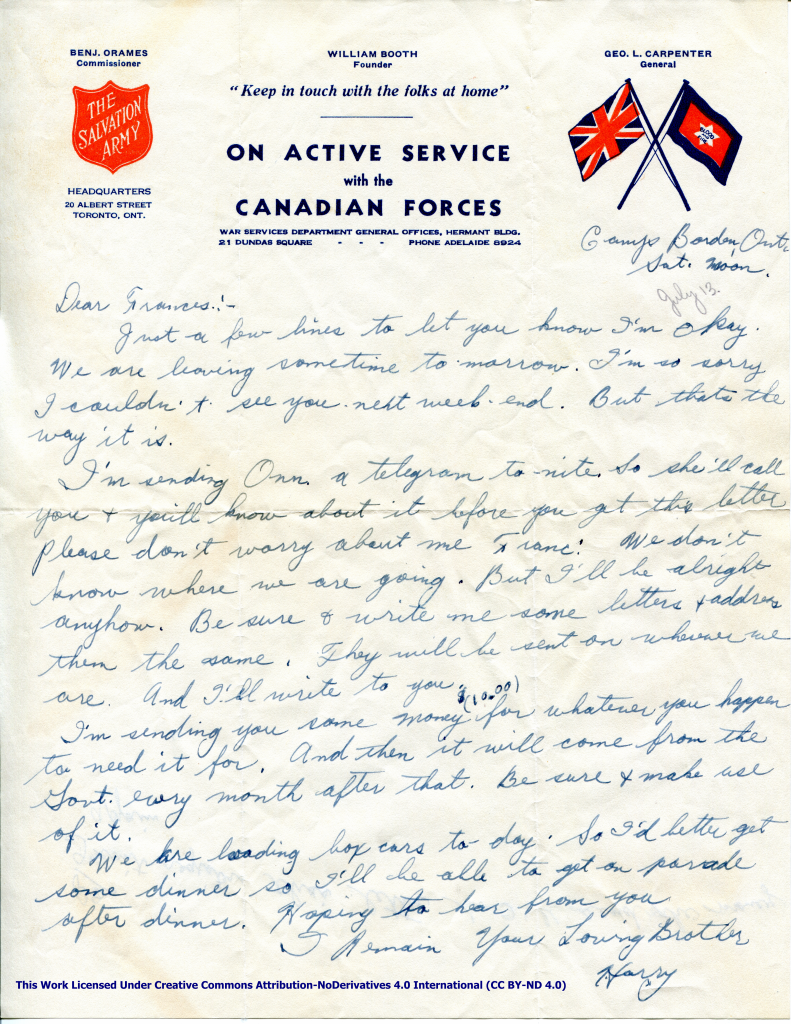 BENJ. ORAMES
Commissioner
WILLIAM BOOTH
Founder
GEO. L. CARPENTER
General
"Keep in touch with the folks at home"
THE
SALVATION
ARMY
BLOOD
AND
FIRE
ON ACTIVE SERVICE
with the
CANADIAN FORCES
HEADQUARTERS
20 ALBERT STREET
TORONTO, ONT.
WAR SERVICES DEPARTMENT GENERAL OFFICES, HERMANT BLDG.
21 DUNDAS SQUARE - - - PHONE ADELAIDE 8924
Camp Borden, Ont.
Sat. Noon.
July 13.
Dear Frances:-
Just a few lines to let you know I'm okay.
We are leaving sometime to-morrow. I'm so sorry
I couldn't see you next week-end. But thats the
way it is.
I'm sending Onn. a telegram to-nite. So she'll call
you + you'll know about it before you get this letter
Please don't worry about me Franc! We don't
know where we are going. But I'll be alright
anyhow. Be sure & write me some letters + address
them the same. They will be sent on wherever we
are. And I'll write to you.
$(10.00)
I'm sending you some money for whatever you happen
to need it for. And then it will come from the
Govt. every month after that. Be sure & make use
of it.
We are loading box cars to-day. So I'd better get
some dinner so I'll be able to get on parade
after dinner. Hoping to hear from you
I Remain Your Loving Brother
Harry
This Work Licensed Under Creative Commons Attribution-NoDerivatives 4.0 International (CC BY-ND 4.0)